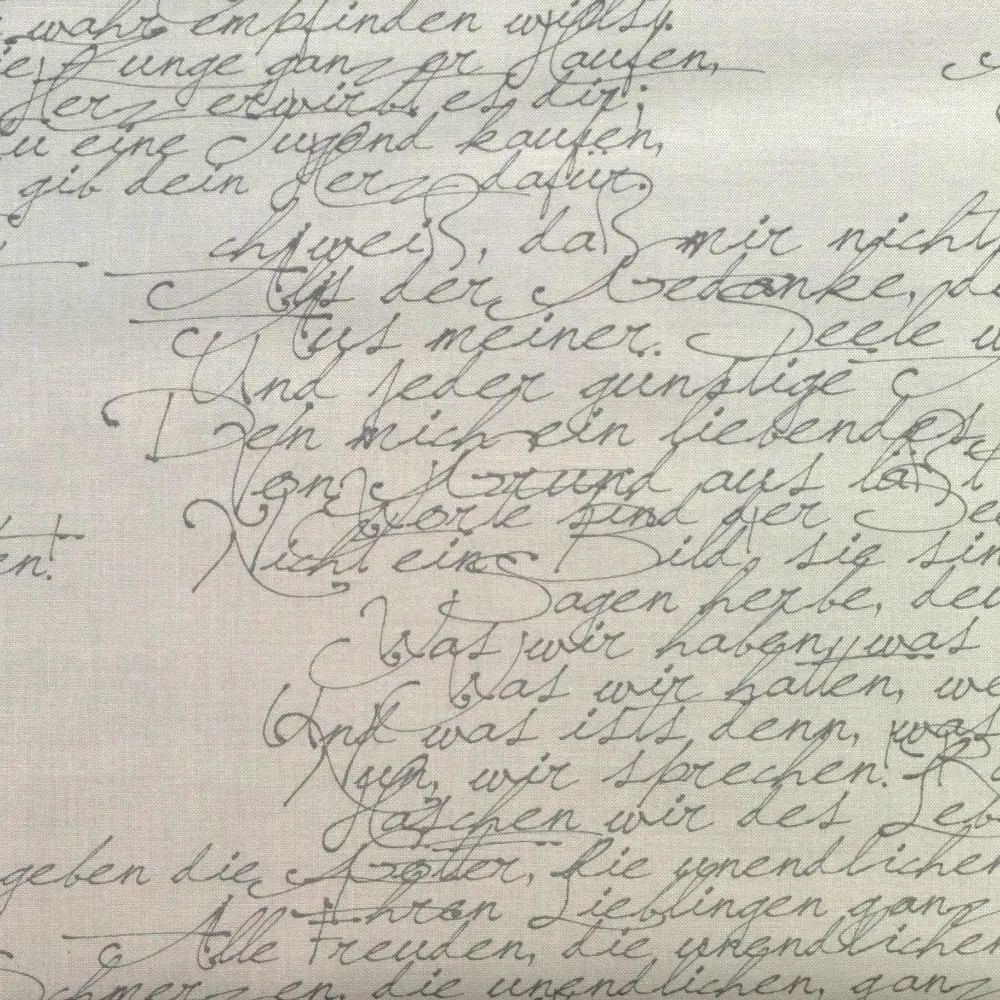 wahr empfinden willst.
Junge ganzer Haufen,
Herz erwirbt es dir;
du eine Jugend kaufen,
gib dein Herz dafür.
Ich weiß, daß mir nicht
Als der Gedanke, de
Aus meiner Seele w
Und jeder günstige
Den mich ein liebendes
Von Grund aus läßt
Worte sind der See
en!
Nicht ein Bild, sie sin
Sagen herbe, deu
Was wir haben, was
Was wir hatten, we
Und was ists denn, was
Nun, wir sprechen! Ra
Haschen wir des Leb
geben die Götter, die unendlichen
Ihren Lieblingen ganz
Alle Freuden, die unendlichen
Schmerzen, die unendlichen, ganz